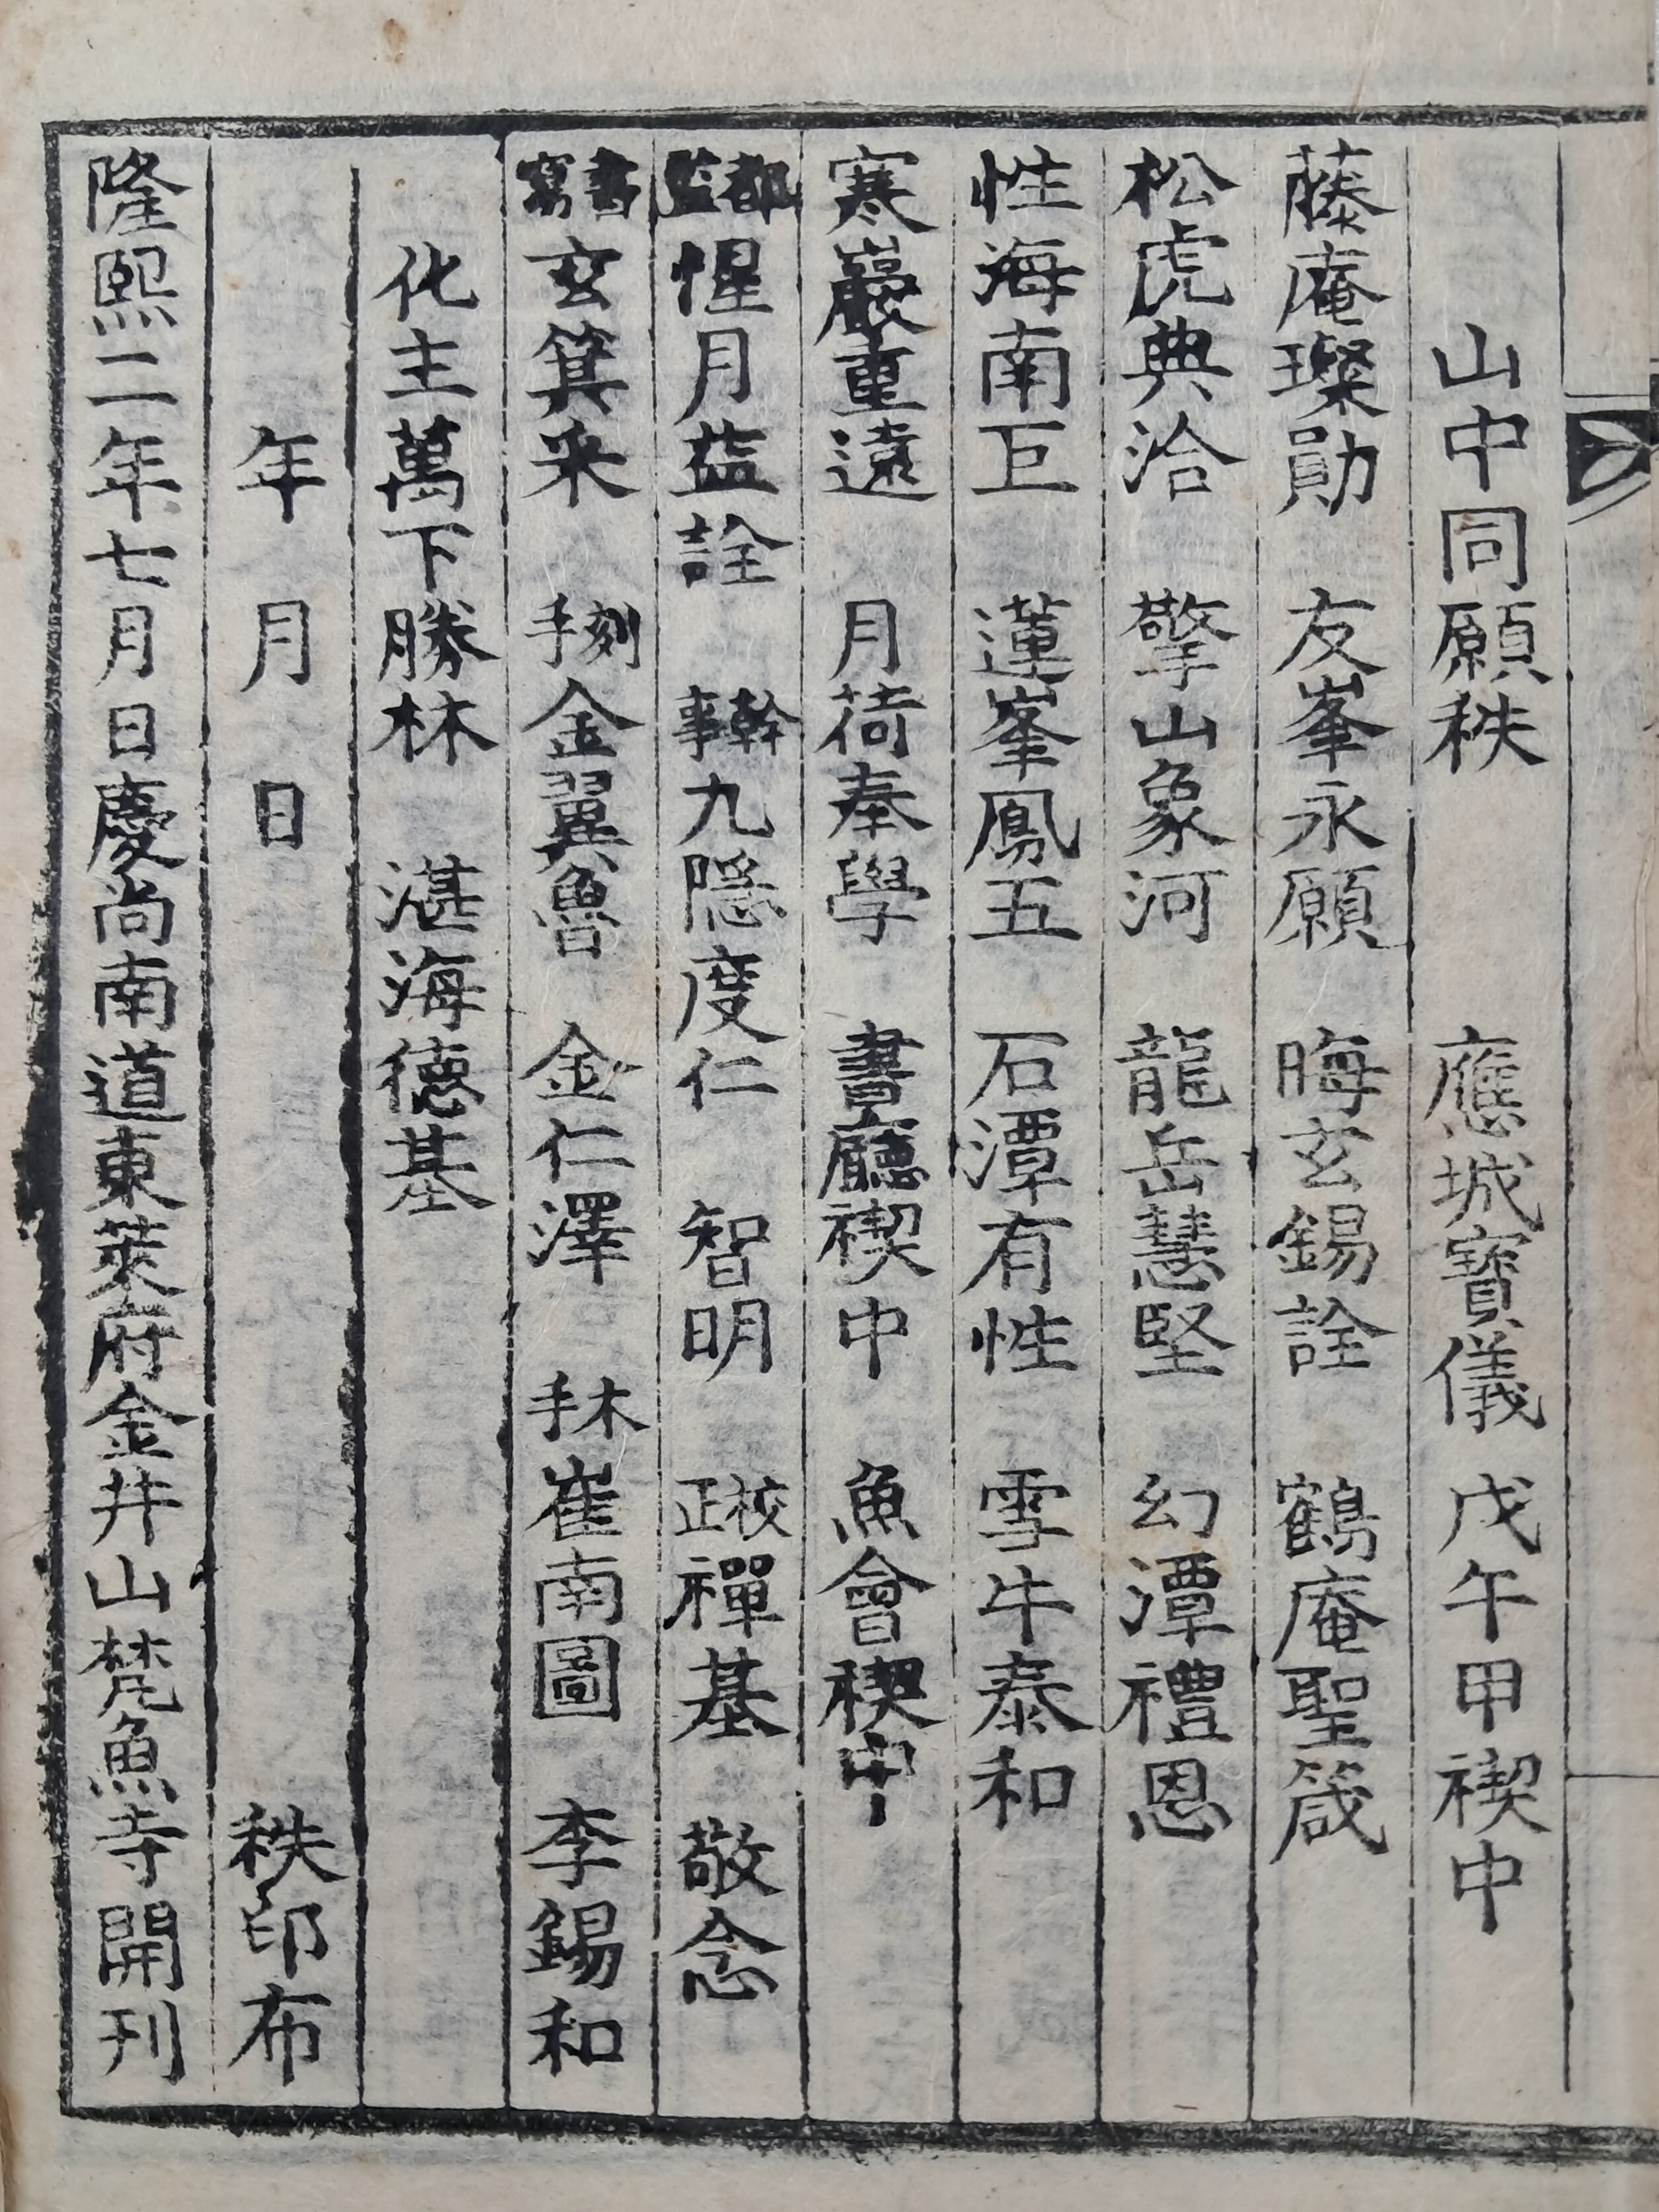 山中同願秩 應城寶儀 戊午甲禊中
藤庵璨勛 友峯永願 晦玄錫詮 鶴庵聖箴
松虎典洽 擎山象河 龍岳慧堅 幻潭禮恩
性海南巨 蓮峯鳳五 石潭有性 雪牛泰和
寒巖重遠 月荷奉學 晝廳禊中 魚會禊中
都監惺月益詮 幹事九隱度仁 智明 校正禪基 敬念
書寫玄箕采 刻手金翼魯 金仁澤 木手崔南圖 李錫和
化主萬下勝林 湛海德基
年 月 日 秩印布
隆熙二年七月日慶尚南道東萊府金井山梵魚寺開刊